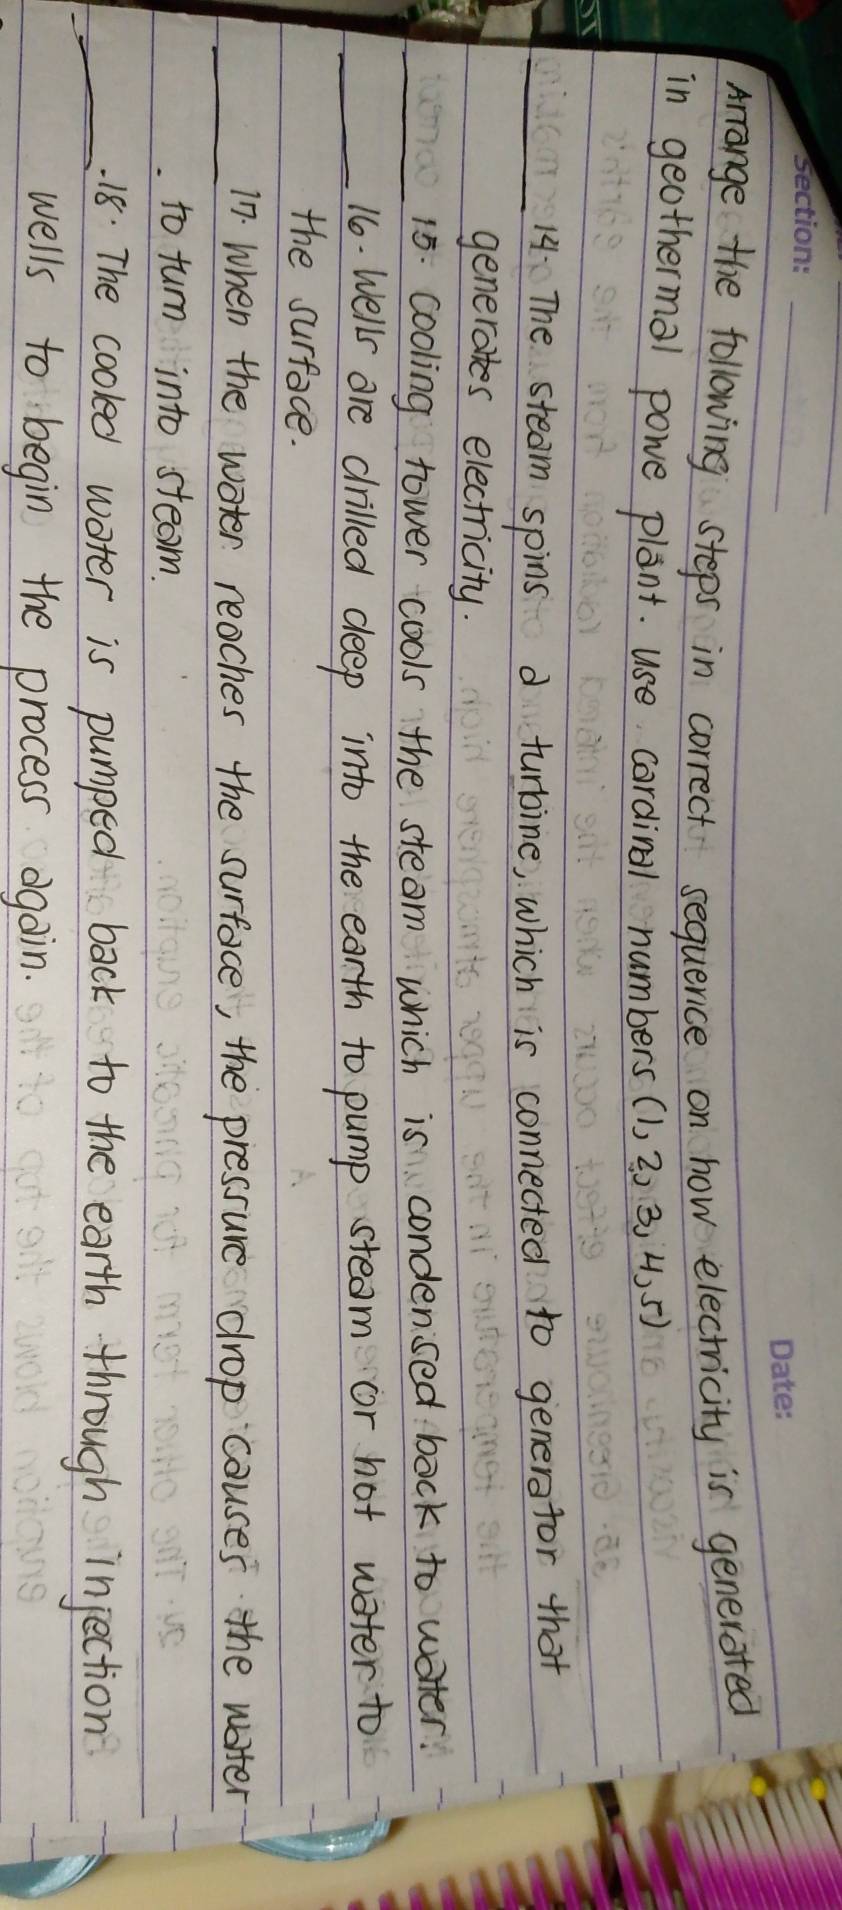 Section:
Date:
Arrange the following steps in correct sequence on how electricity is generated
in geothermal powe plant. Use cardinal numbers (1, 2, 3, 4, 5)
14. The steam spins a turbine, which is connected to generator that
generates electricity.
15. Cooling tower cools the steam which is condensed back to water.
16. Wells are drilled deep into the earth to pump steam or hot water to
the surface.
17. When the water reaches the surface, the pressure drop causes the water
to turn into steam.
18. The cooled water is pumped back to the earth through injection
wells to begin the process again.